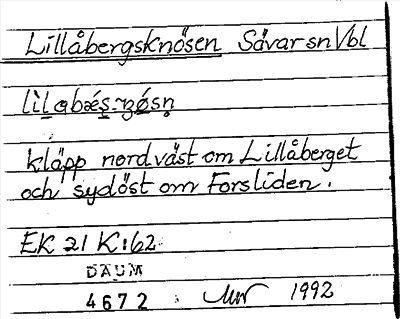 Lillåbergsknösen Sävar sn Vbl
kläpp nordväst om Lillåberget
och sydöst om Forsliden.
EK 21 K:62
DAUM
4672 1992